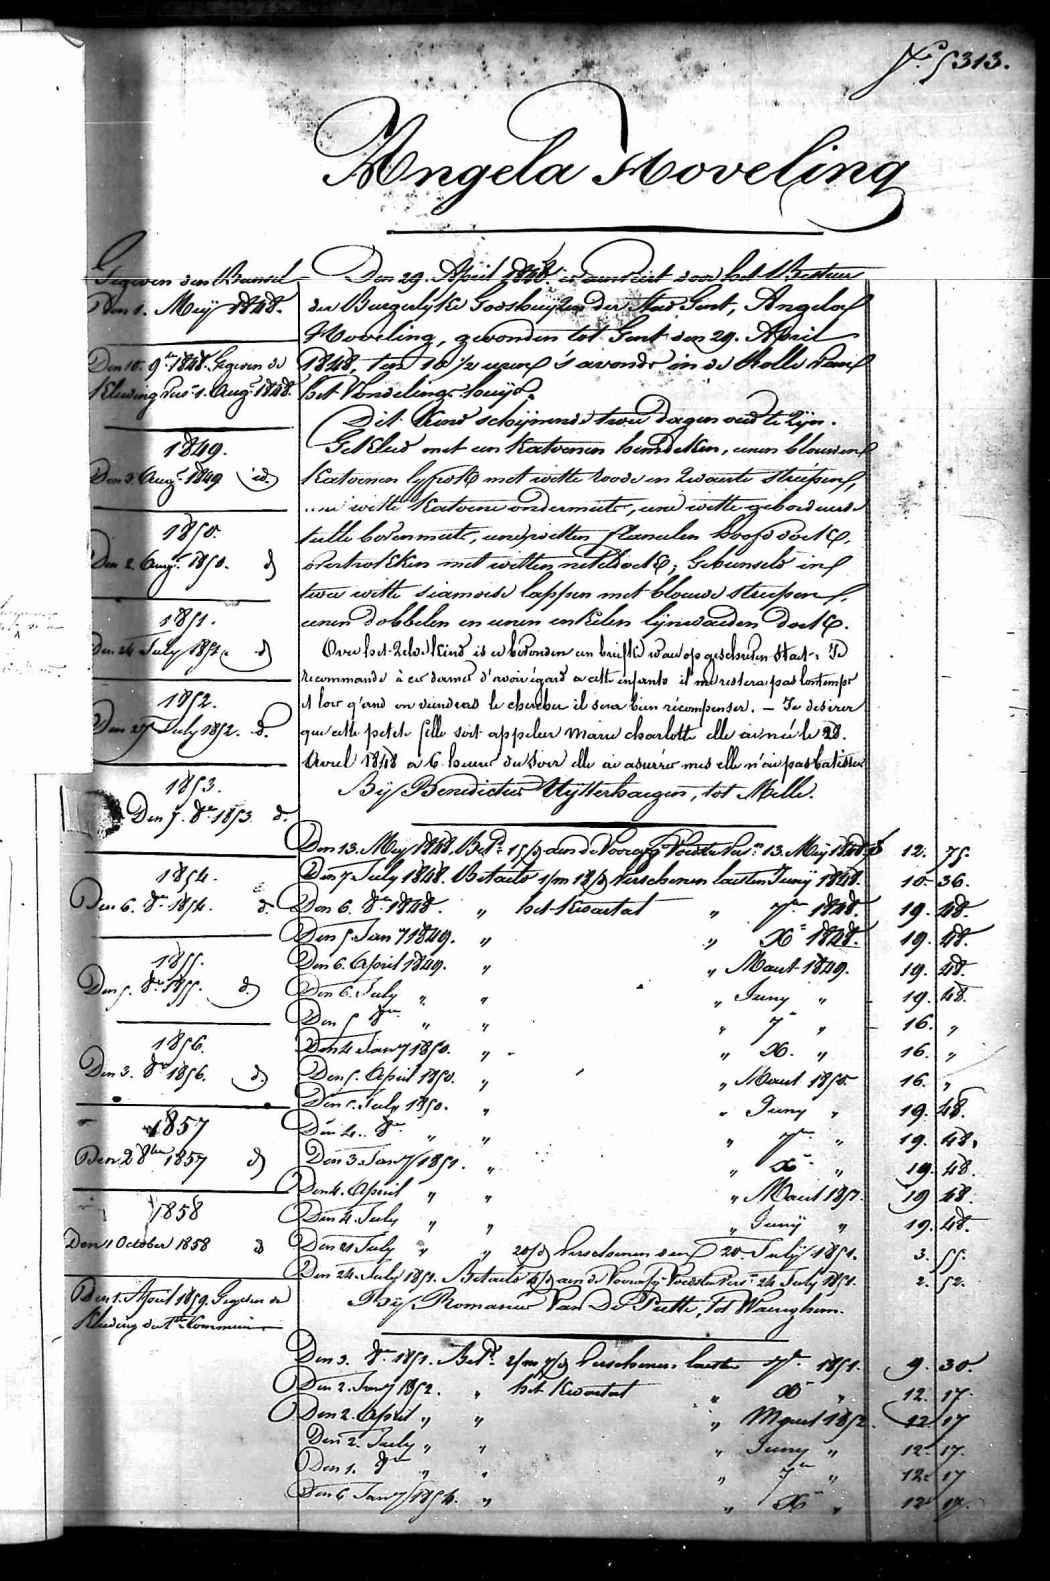 N.o 5313.
Angela Hoveling
Gegeven den Bunsel
Den 1. Meÿ 1848.
Den 10. 9.re 1848. Gegeven de
Kleeding vers. 1. Aug.t 1848.
1849.
Den 3. Aug.t 1849 id.
1850.
Den 2. Aug.t 1850. d
1851.
Den 24 July 1851. d
1852.
Den 27 July 1852. d.
1853.
Den 7. 8.re 1853 d.
1854.
Den 6. 8.re 1854. d.
1855.
Den 5. 8.re 1855. d.
1856.
Den 3. 8.re 1856. d.
1857
Den 2 8bre 1857 d
1858
Den 1 October 1858 d
Den 1. April 1859. Gegeven de
Kleeding der 1.te Communie
Den 29. April 1848, is aenveert door het Bestuer
der Burgerlyke Godshuyzen der Stad Gent, Angela
Hoveling, gevonden tot Gent den 29. April
1848, ten 10 1/2 uren 's avonds in de Rolle van
het Vondelingshuys.
Dit Kind schijnende twee dagen oud te zyn.
Gekleed met een katoenen hemdeken, eenen blauwen
katoenen lyfrok met witte roode en zwarte streepen,
eene witte katoene ondermuts, eene witte geborduerde
tulle bovenmuts, eenen witten flanelen hoofddoek
overtrokken met witten neteldoek; Gebunseld in
twee witte siamoise lappen met blauwe streepen,
eenen dobbelen en eenen enkelen lynwaeden doek.
Over het zelve Kind is er bevonden een briefke waer op geschreven staet: Je
recommande à ces dames d'avoir égard a cette enfants il me restera pas lontemps
et lors q'and on viendera le chercher il sera bien récompenser. — Je desirer
que cette petite fille soit appeleer Marie Charlotte elle ai née le 28.
Avril 1848 a 6 heure du Soir elle ai asurrée mes elle n'ai pas batisser
Bÿ Benedictus Uytterhaegen, tot Melle.
Den 13. Meÿ 1848. Bet.d 15/d aen de Voorgs Voedster vers.n 13. Meÿ 1848 f 12. 75.
Den 7 July 1848. Betaeld 1/m 18/d verschenen laetsten Junÿ 1848. 10. 36.
Den 6. 8.re 1848. „ het Kwartael „ 7.re 1848. 19. 48.
Den 5 Janry 1849. „ „ X.re 1848. 19. 48.
Den 6. April 1849. „ „ Maert 1849. 19. 48.
Den 6. July „ „ „ Juny „ 19. 48.
Den 5 8.re „ „ „ 7.re „ 16. „
Den 4 Janry 1850. „ „ X. „ 16. „
Den 5. April 1850. „ „ Maert 1850 16. „
Den 5. July 1850. „ „ Juny „ 19. 48.
Den 4. 8.re „ „ „ 7.re „ 19. 48.
Den 3. Janry 1851. „ „ X.re „ 19. 48.
Den 4. April „ „ „ Maert 1851. 19 48.
Den 4 July „ „ „ Junÿ „ 19. 48.
Den 21 July „ „ 20/d verschenen den 20. July 1851. 3. 55.
Den 24. July 1851. Betaeld 4/d aen de Voorgs Voedster vers.n 24 July 1851. 2. 52.
Bÿ Romanie Van De Putte, tot Waereghem.
Den 3. 8.re 1851. Bet.d 2/m 7/d verschenen laetste 7.re 1851. 9. 30.
Den 2. Janry 1852. „ het Kwartael „ X.re „ 12. 17.
Den 2. April „ „ „ Maert 1852. 12. 17
Den 2. July „ „ „ Juny „ 12. 17.
Den 1. 8.re „ „ „ 7.re „ 12. 17
Den 6 Janry 1854. „ „ X.re „ 12. 17.